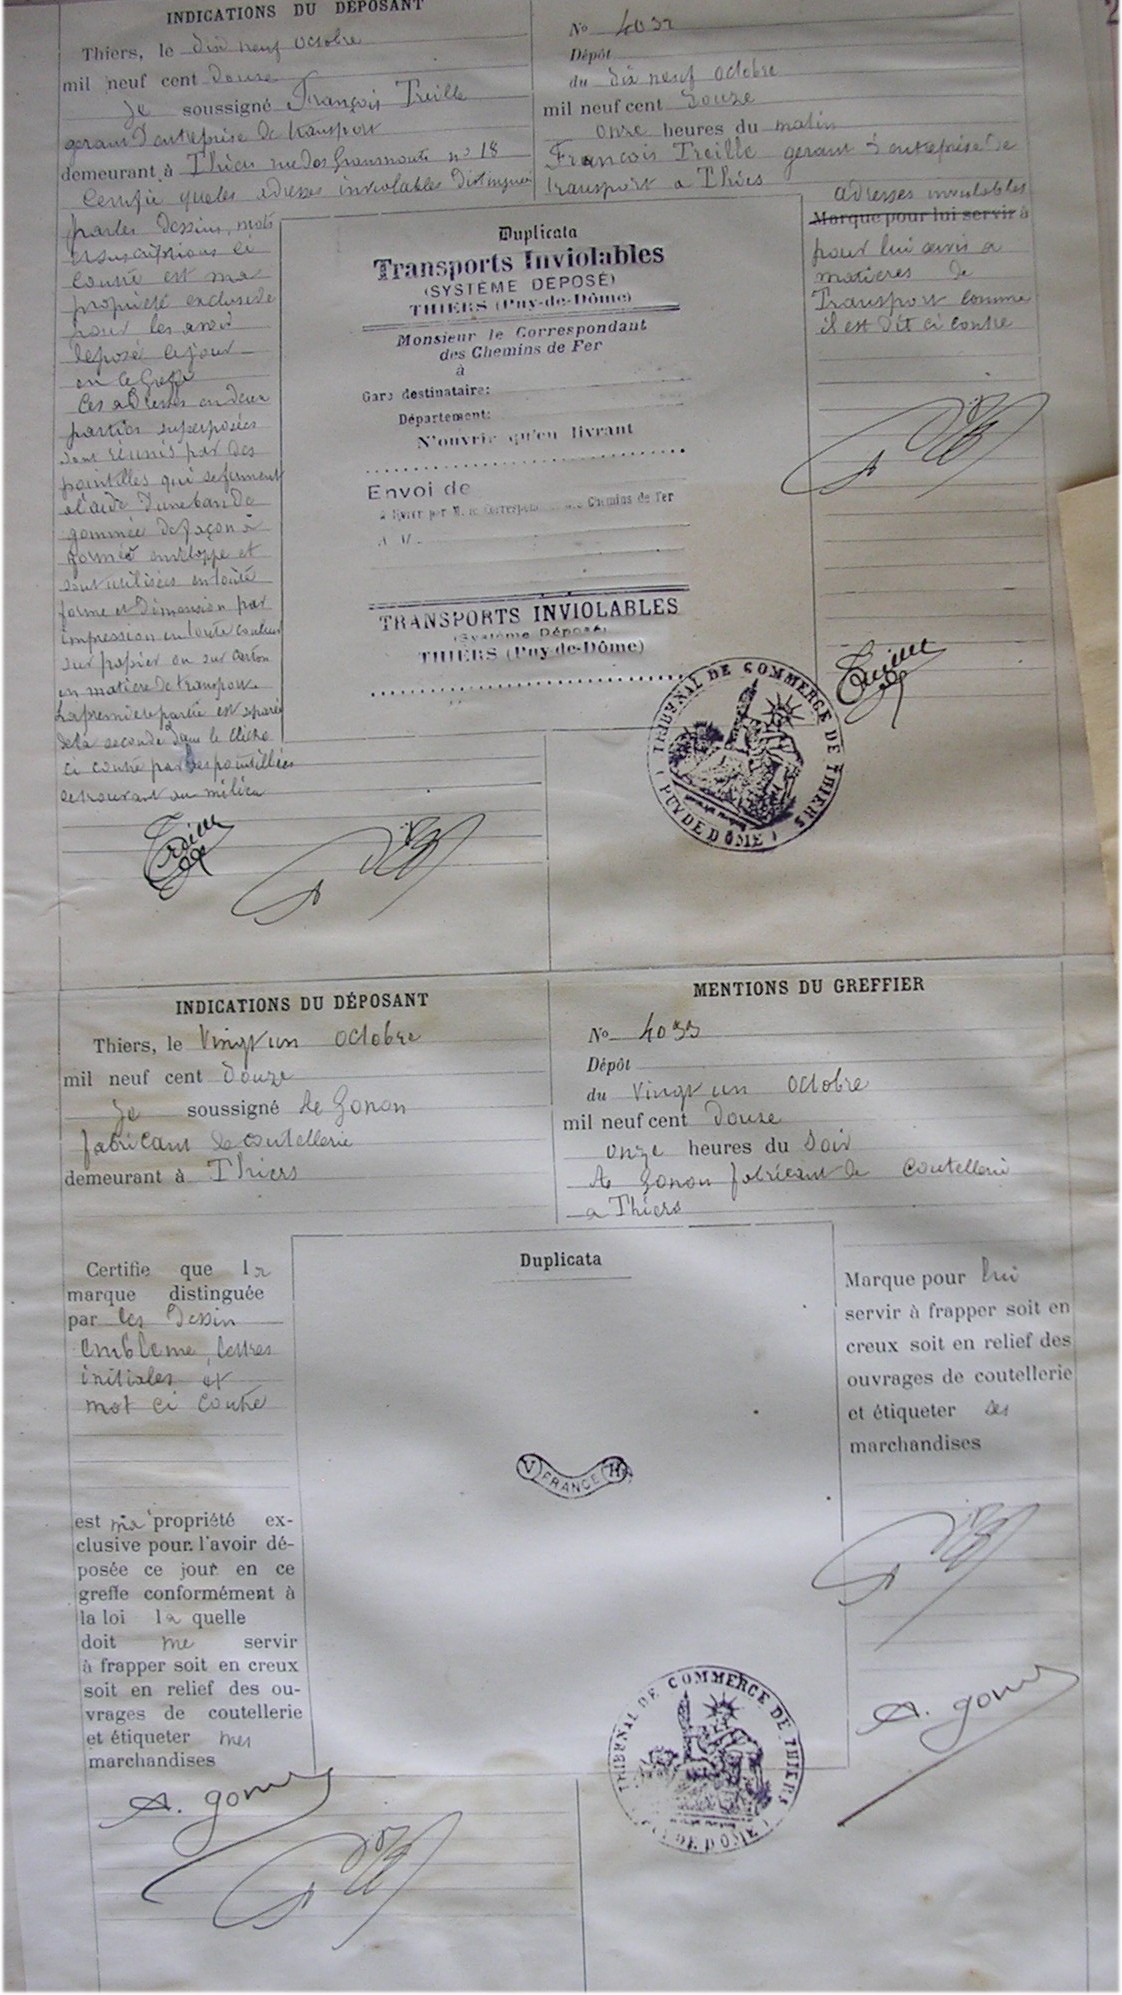 INDICATIONS DU DÉPOSANT
Thiers, le dix neuf octobre
mil neuf cent douze
Je soussigné François Treille
gerant d'entreprise de transport
demeurant à Thiers rue des Grammonts n° 18
Certifie que les adresses inviolables distinguées
par les dessins, mots
inscriptions ci
contre est ma
propriété exclusive
pour les avoir
déposé ce jour
en ce Greffe
Ces adresses en deux
parties superposées
sont réunis par des
pointilles qui se ferment
a l'aide d'une bande
gommée de façon à
former enveloppe et
sont utilisées en toute
forme et dimension par
impression en toute couleur
sur papier ou sur carton
en matière de transport
La première partie est séparée
de la seconde dans le cliché
ci contre par des pointillées
se trouvant au milieu
Treille
No 4032
Dépôt
du dix neuf octobre
mil neuf cent douze
onze heures du matin
François Treille gerant d'entreprise de
transport a Thiers
adresses inviolables
Marque pour lui servir à
pour lui servir a
matières de
Transport comme
il est dit ci contre
Treille
Duplicata
Transports Inviolables
(SYSTÈME DÉPOSÉ)
THIERS (Puy-de-Dôme)
Monsieur le Correspondant
des Chemins de Fer
à
Gare destinataire:
Département:
N'ouvrir qu'en livrant
Envoi de
à livrer par M. le Correspondant des Chemins de Fer
A M.
TRANSPORTS INVIOLABLES
(Système Déposé)
THIERS (Puy-de-Dôme)
TRIBUNAL DE COMMERCE DE THIERS
(PUY DE DÔME)
INDICATIONS DU DÉPOSANT
Thiers, le Vingt un octobre
mil neuf cent douze
Je soussigné A Gonon
fabricant de coutellerie
demeurant à Thiers
Certifie que la
marque distinguée
par les dessin
embleme, lettres
initiales et
mot ci contre
est ma propriété ex-
clusive pour l'avoir dé-
posée ce jour en ce
greffe conformément à
la loi la quelle
doit me servir
à frapper soit en creux
soit en relief des ou-
vrages de coutellerie
et étiqueter mes
marchandises
A. Gonon
MENTIONS DU GREFFIER
No 4033
Dépôt
du Vingt un octobre
mil neuf cent douze
onze heures du soir
A Gonon fabricant de coutellerie
a Thiers
Duplicata
V FRANCE H
Marque pour lui
servir à frapper soit en
creux soit en relief des
ouvrages de coutellerie
et étiqueter ses
marchandises
A. Gonon
TRIBUNAL DE COMMERCE DE THIERS
(PUY DE DÔME)